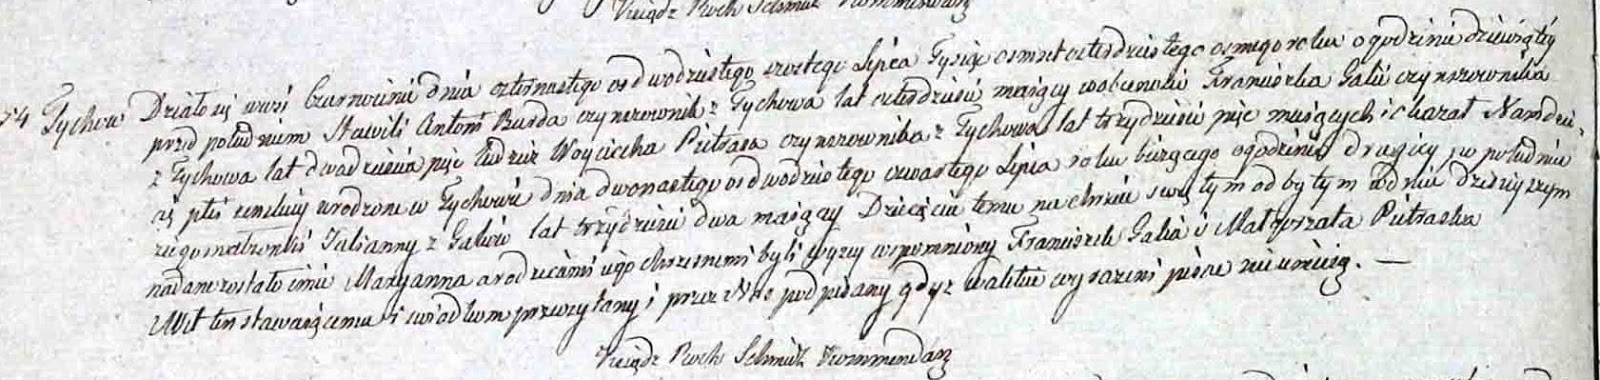 Xiądz Roch Schmidt Kommendarz
54 Tychow Działo się w wsi Czarnocinie dnia czternastego o dwudziestego szóstego Lipca Tysiąc osmset czterdziestego osmego roku o godzinie dziewiątey
przed południem Stawili Antoni Burda czynszownik z Tychowa lat czterdzieści maiący w obecności Franciszka Galii czynszownika
z Tychowa lat dwadzieścia pięć tudzież Woyciecha Pietrasa czynszownika z Tychowa lat trzydzieści pięc maiących i okazał Nam dzie-
cię płci żenskiey urodzone w Tychowie dnia dwunastego o dwudziestego czwartego Lipca roku bieżącego o godzinie drugiey po południu
z iego małżonki Julianny z Galiów lat trzydzieści dwa maiący Dziecięciu temu na chrzcie swiętym odbytym w dniu dzisieyszym
nadane zostało imie Maryanna a rodzicami iego chrzesnemi byli wyzey wspomniony Franciszek Galia i Małgorzata Pietraska
Akt ten stawaiącemu i swiadkom przeczytany i przez Nas podpisany gdyz w akcie wyrazeni pisac nie umieią. —
Xiądz Roch Schmidt Kommendarz